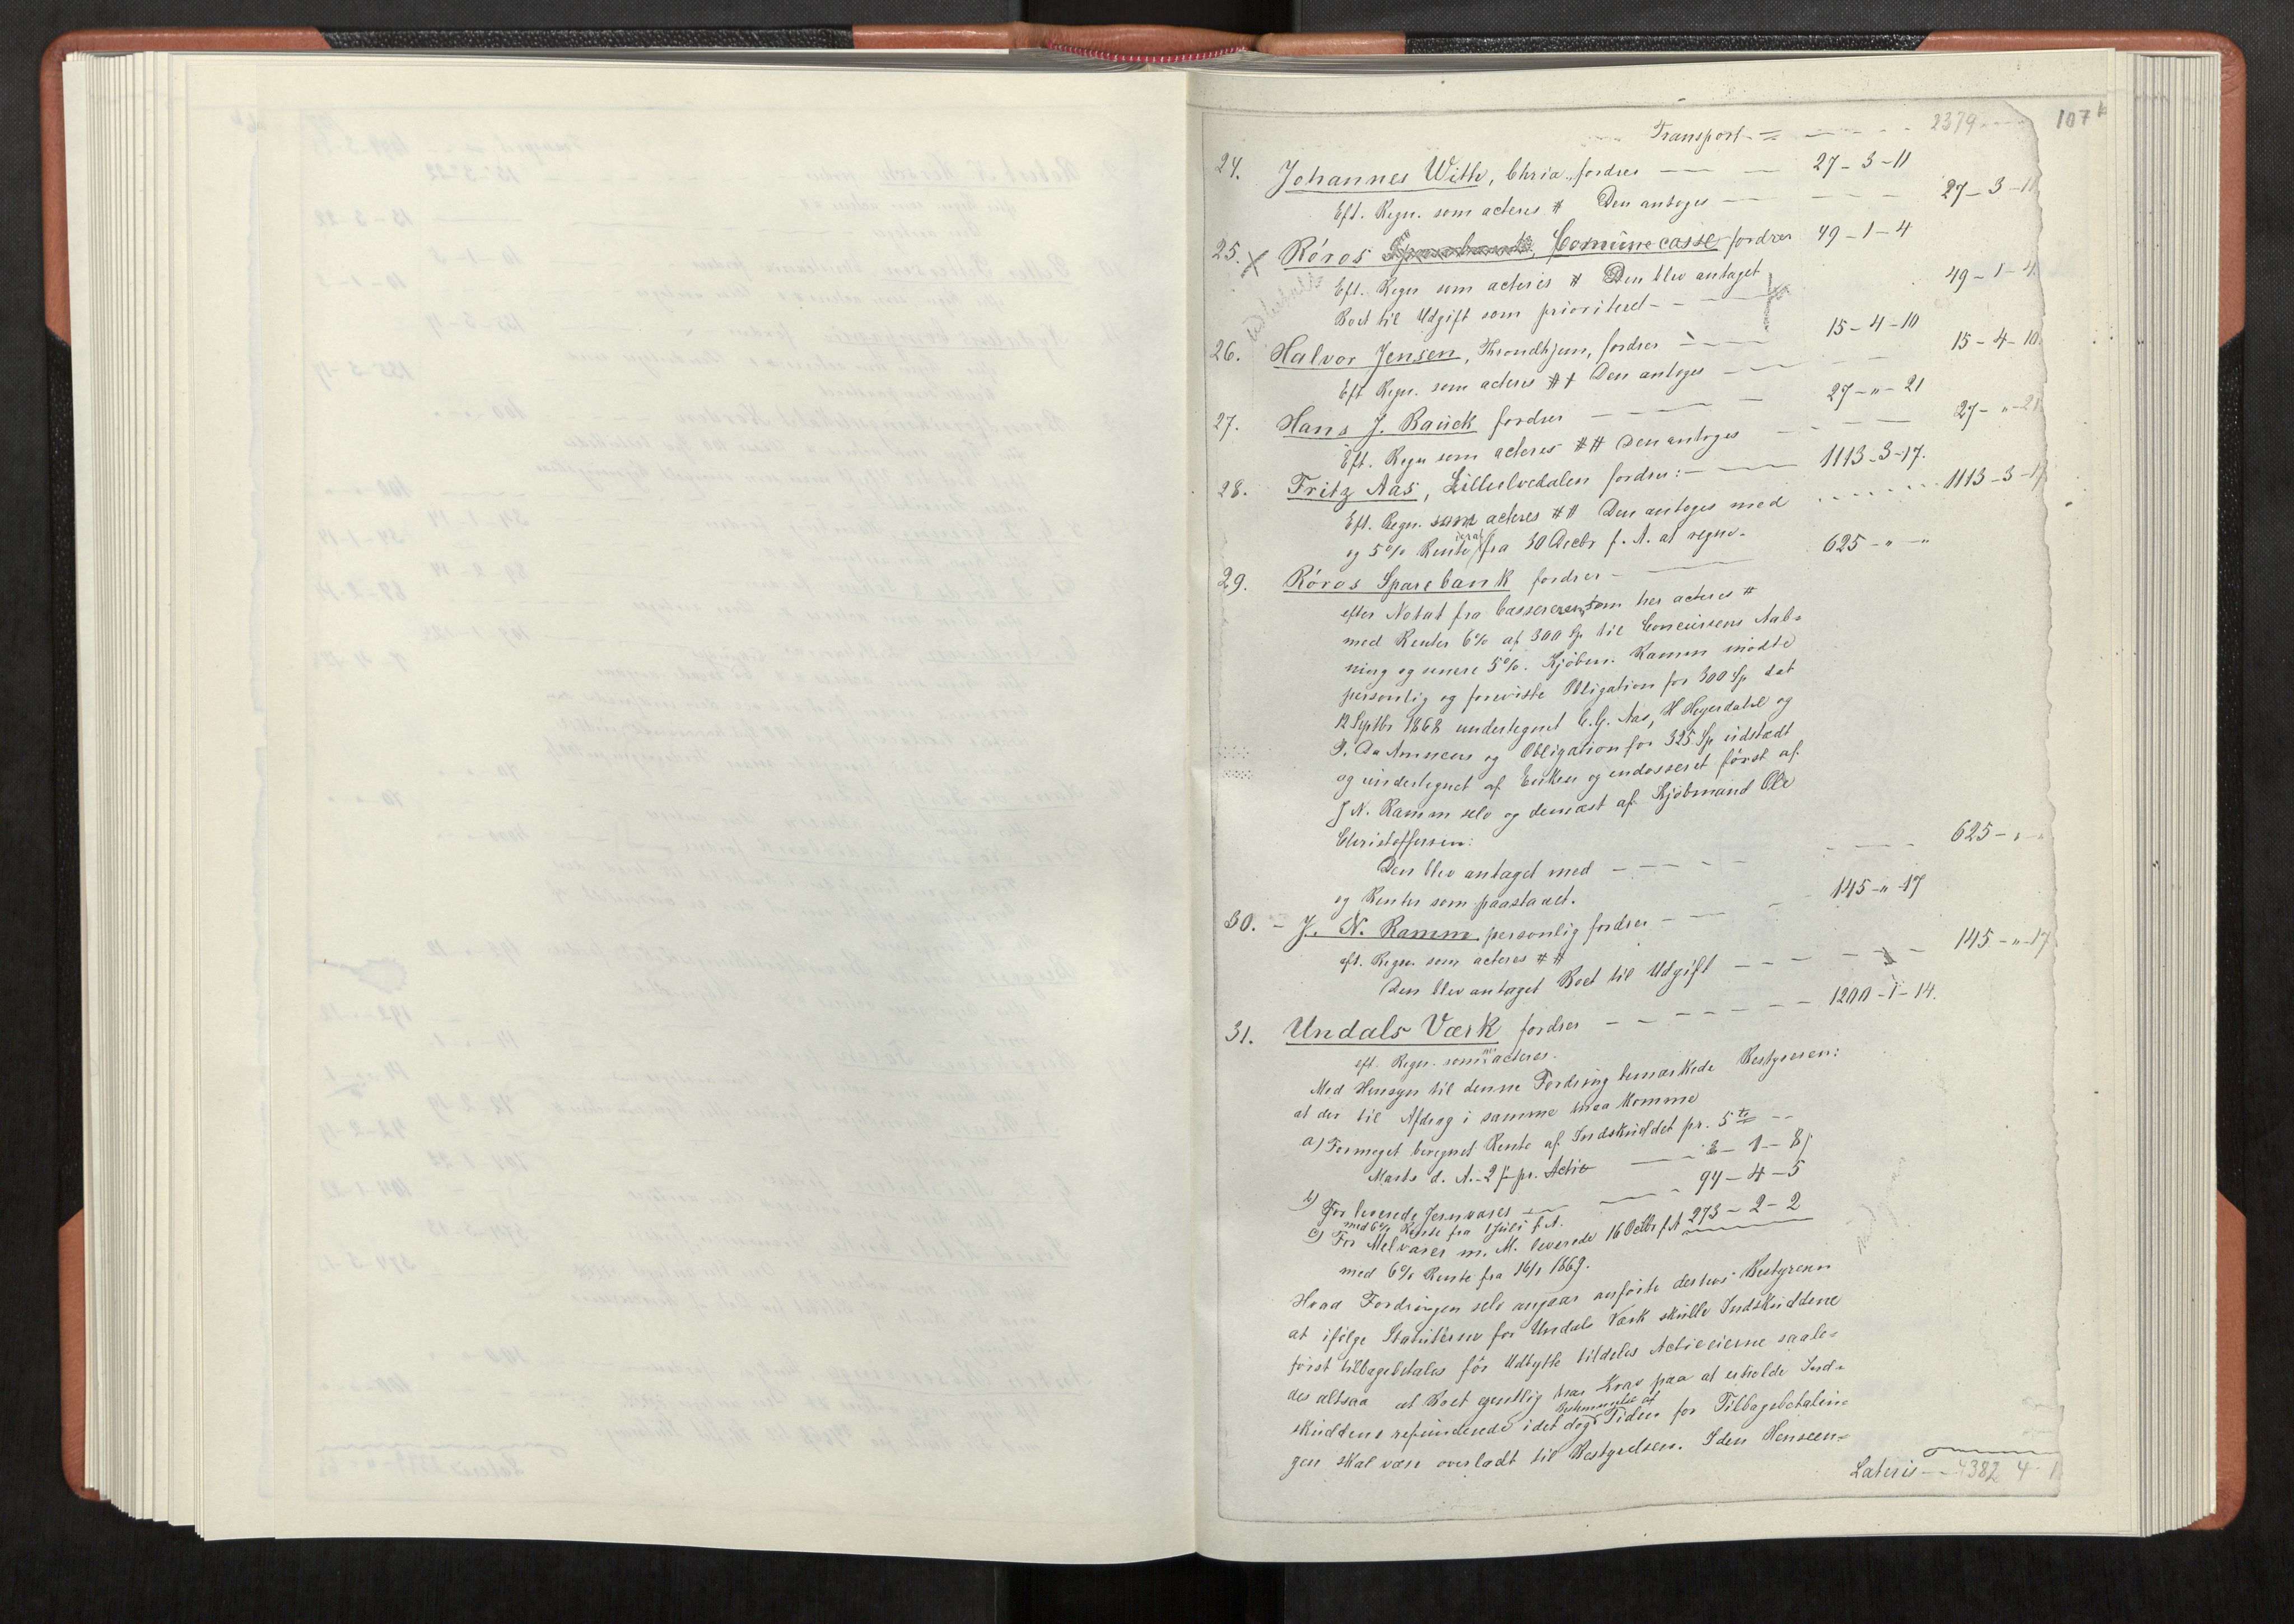 107
Transport - = - - - 2379
24. Johannes With, Chria., fordrer — — 27 - 3 - 11
Eft. Regn. som acteres # Den antoges — - - - 27 - 3 - 11
25. X Röros Sparebank, Comünecasse fordrer 49 - 1 - 4
Eft. Regn som acteres # Den blev antaget
Boet til Udgift som prioriteret - - — 49 - 1 - 4
26. Halvor Jensen, Throndhjem, fordrer - — 15 - 4 - 10
Eft Regn. som acteres ## Den antoges — - — 15 - 4 - 10
27. Hans J. Rauck fordrer — - — - — 27 - " - 21
Eft. Regn som acteres ## Den antoges — - — 27 - " - 21
28. Fritz Aas, Lilleelvedalen fordrer: — — 1113 - 3 - 17.
Eft. Regn. som acteres ## Den antoges med ....... 1113 - 3 - 17
og 5% Rente deraf fra 30 Decbr f. A. at regne.
29. Röros Sparebank fordrer - — 625 - " - "
efter Notat fra Cassereren, som her acteres #
med Renter 6% af 300 Sp til Concürsens Aab-
ning og senere 5%. Kjöbm. Ramm mödte
personlig og foreviste Obligation for 300 Sp dat
12 Septbr 1868 undertegnet C. G. Aas, H Heyerdahl og
P. Aa Amneus og Obligation for 325 Sp üdstædt
og ündertegnet af Enken og endosseret först af
J N. Ramm selv og dernæst af Kjöbmand Ole
Christoffersen:
Den blev antaget med — - — - - — 625 - " - "
og Renter som paastaaet.
30. - J. N. Ramm personlig fordrer - — - 145 - " - 17
eft. Regn. som acteres ##
Den blev antaget Boet til Udgift — - — - — 145 - " - 17
31. Undals Værk fordrer — - — - — 1200 - 1 - 14.
eft. Regn. som acteres.
Med Hensyn til denne Fordring bemærkede Bestyreren:
at der til Afdrag i samme maa komme
a) Formeget beregnet Rente af Indsküddet pr. 5te
Marts d. A. - 2 ß pr. Actie — - 3 - 1 - 8
b) For leverede Jernvarer — — - 94 - 4 - 5
med 6% Rente fra 1 Juli f A.
c) For Melvarer m. M. leverede 16 Octbr f A 273 - 2 - 2
med 6% Rente fra 16/1 1869.
Hvad Fordringen selv angaar anförte desuden Bestyreren
at ifölge Statüterne for Undals Værk skülle Indsküddene
först tilbagebetales för Udbytte tildeles Actieeierne saale-
des altsaa at Boet egentlig har Krav paa at erholde Ind-
sküddene refünderede idet dog Bestemmelse af Tiden for Tilbagebetalin-
gen skal være overladt til Bestyrelsen. I den Henseen-
Lateris - - 4382 4 - 1